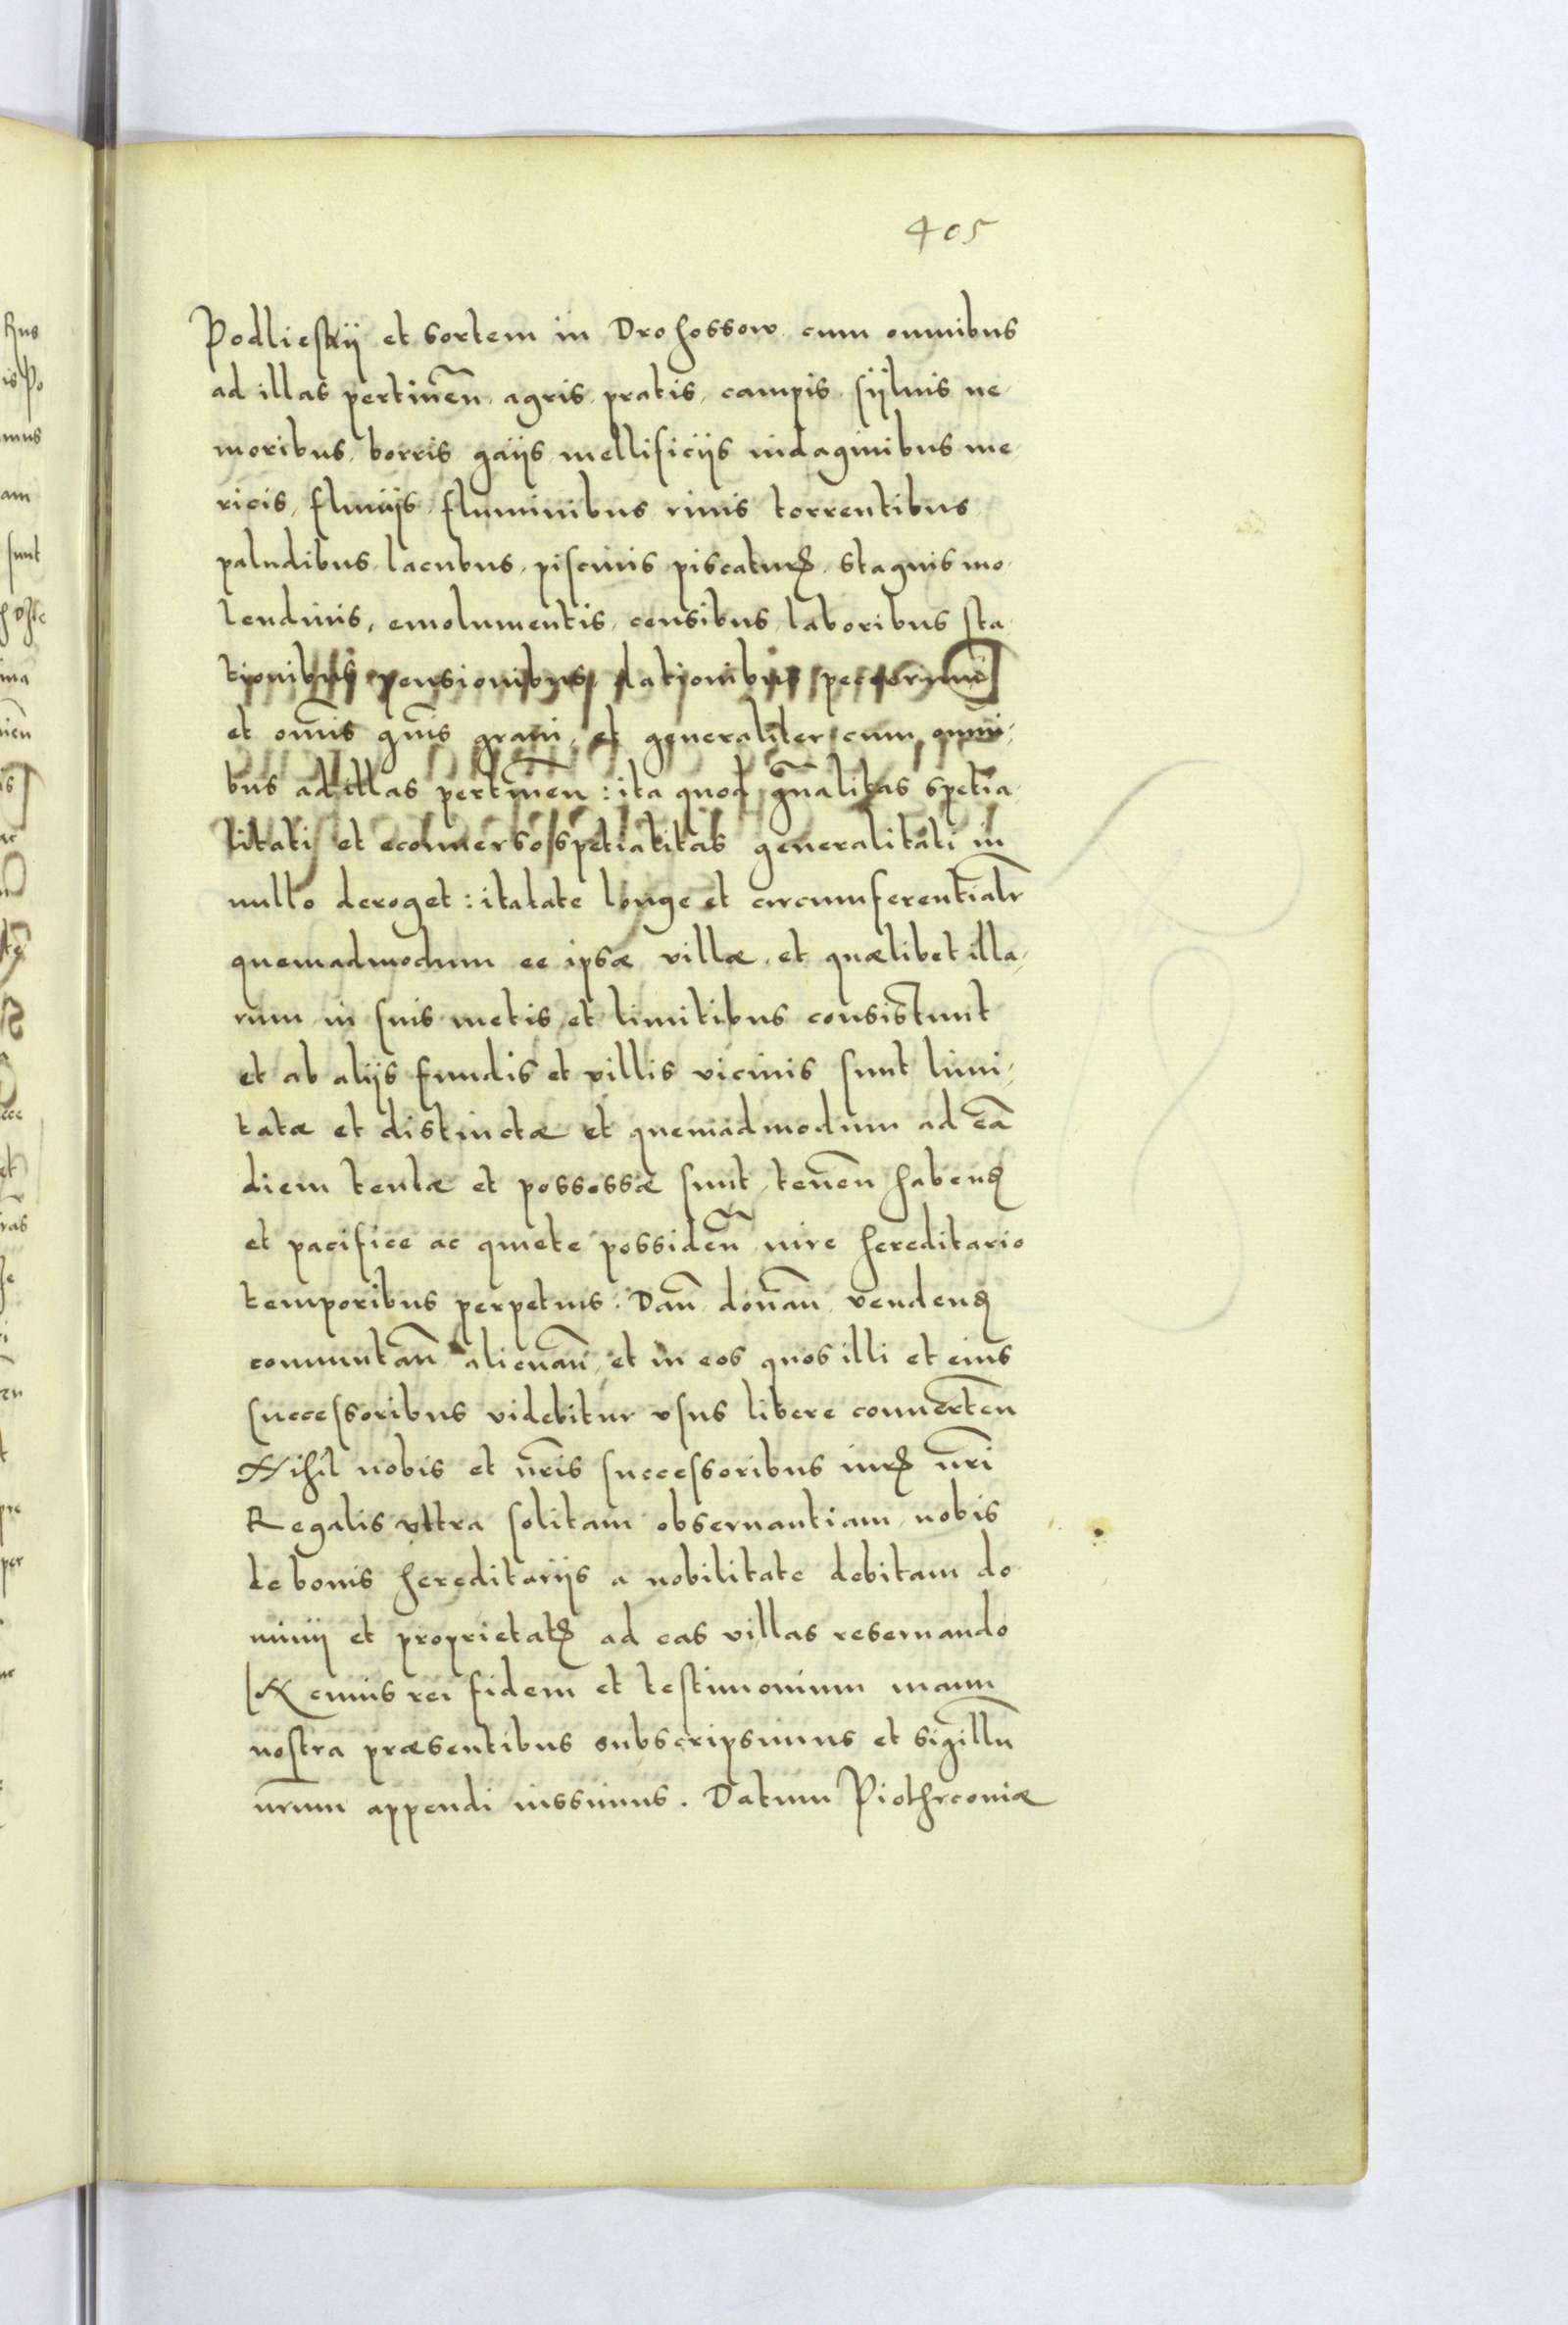 405
Podlieskÿ et sortem in Drohossow cum omnibus
ad illas pertineñ, agris, pratis, campis, sÿluis ne,
moribus, borris gaijs, mellificijs indaginibus me,
ricis, fluuijs, fluminibus riuis torrentibus,
paludibus, lacubus, piscinis piscaturꝭ, stagnis mo,
lendinis, emolumentis, censibus, laboribus sta,
tionibus pensionibus, dationibus
et om̃is gñis grani, et generaliter cum omni,
bus ad illas pertineñ: ita quod gñalitas spetia,
litati et econuerso spetialitas generalitati in
nullo deroget: ita late longe et circumferentialr̃
quemadmodum ee ipsæ villæ, et quælibet illa,
rum in suis metis et limitibus consistunt
et ab alijs fundis et villis vicinis sunt limi,
tatæ et distinctæ et quemadmodum ad eã
diem tentæ et possessæ sunt, teneñ habenꝭ
et pacifice ac quiete possideñ iure hereditario
temporibus perpetuis. Dañ donañ vendenꝭ
commutañ alienañ, et in eos quos illi et eius
successoribus videbitur vsus libere conuerteñ
Nihil nobis et nr̃is successoribus iurꝭ nr̃i
Regalis vltra solitam obseruantiam nobis
de bonis hereditarijs a nobilitate debitam do
minij et proprietatꝭ ad eas villas reseruando
In cuius rei fidem et testimonium manu
nostra præsentibus subscripsimus et sigillũ
nrum appendi iussimus. Datum Piothrconiæ